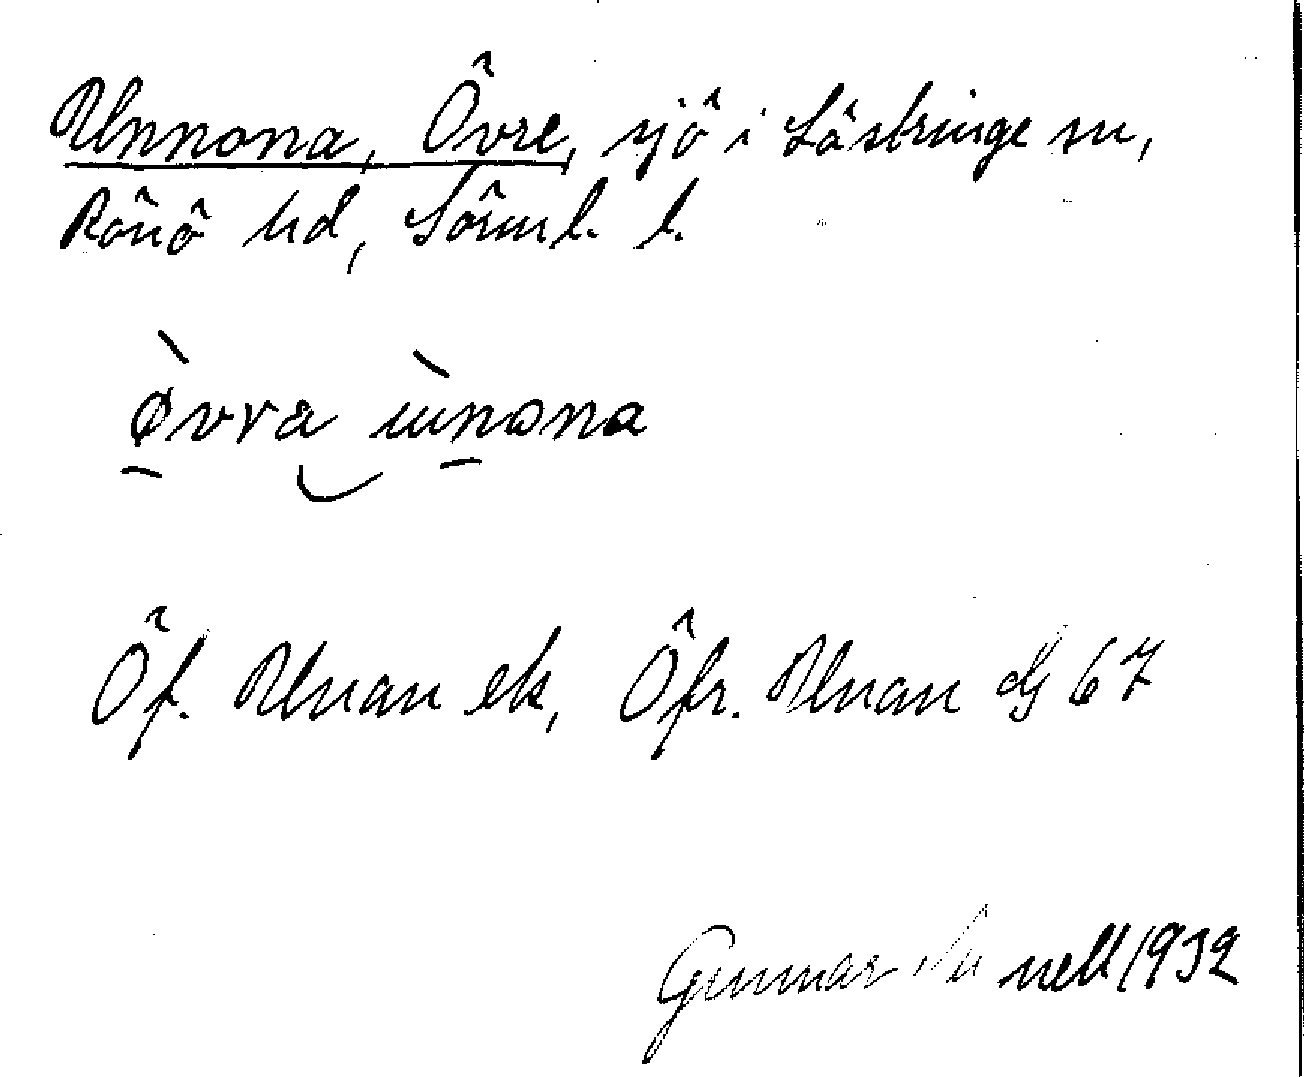 Unnona, Övre, sjö i Lästringe sn,
Rönö hd, Sörml. l.
ø̀vra ùnona
Öf. Unnan ek, Öfr. Unnan dG 67
Gunnar 1932